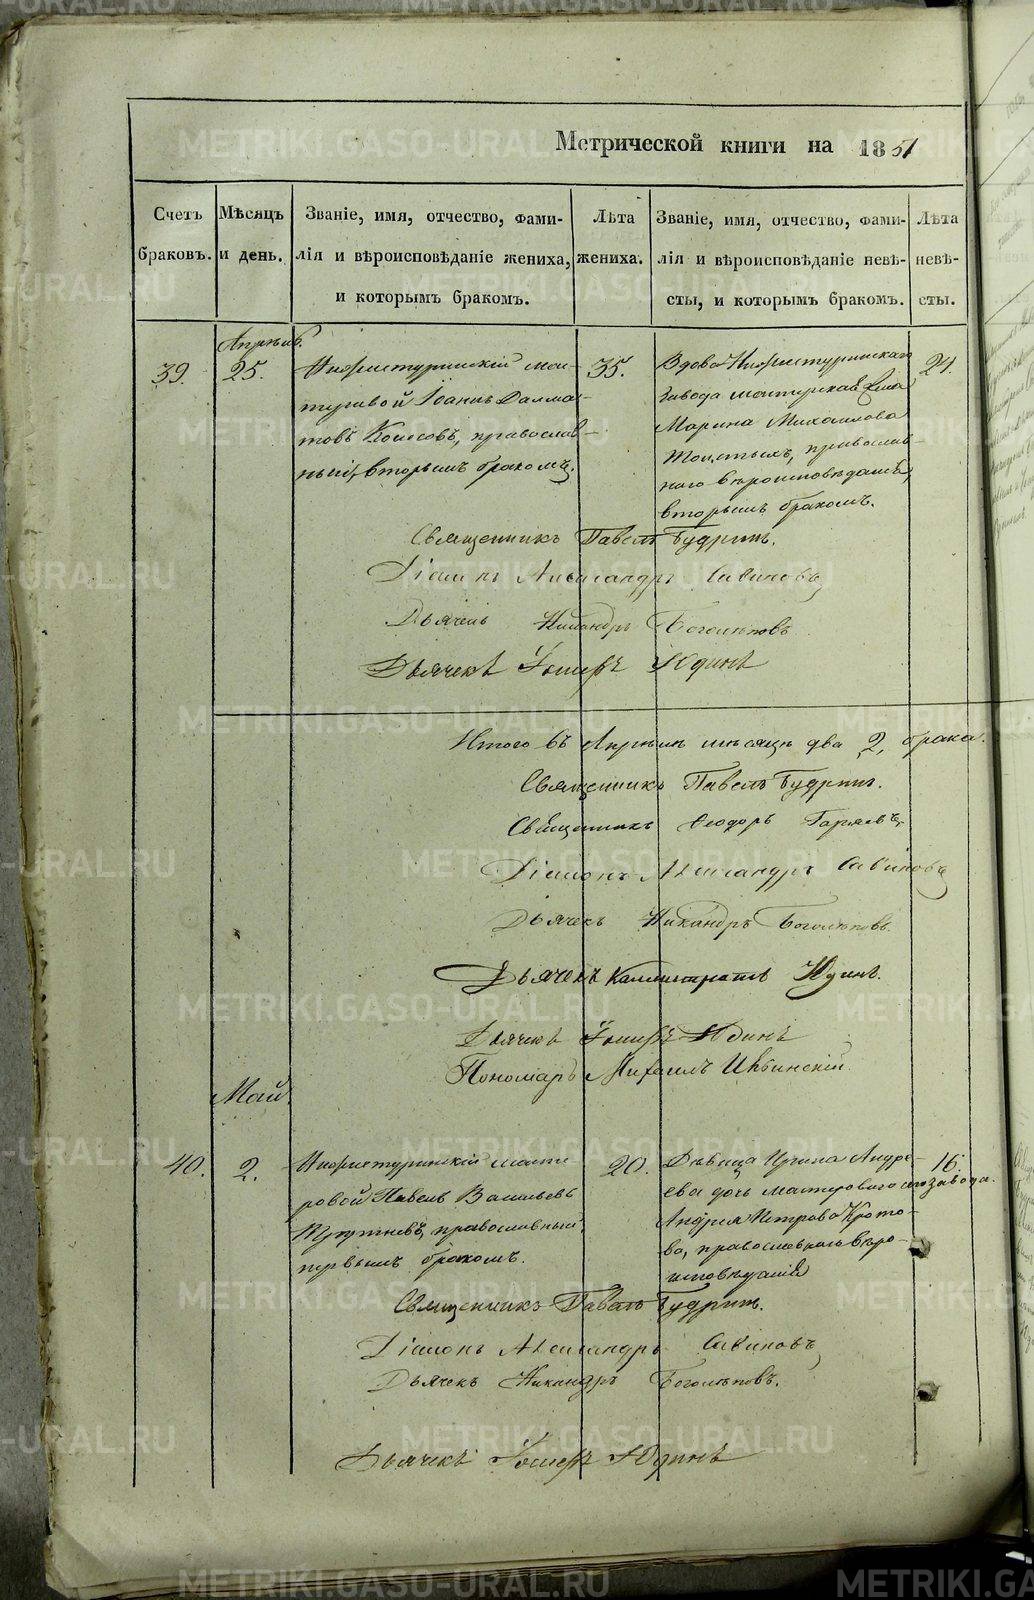 Метрической книги на 1851
Счетъ браковъ.
Мѣсяцъ и день.
Званіе, имя, отчество, фами-
лія и вѣроисповѣданіе жениха,
и которымъ бракомъ.
Лѣта жениха.
Званіе, имя, отчество, фами-
лія и вѣроисповѣданіе невѣ-
сты, и которымъ бракомъ.
Лѣта невѣ-
сты.
Апрѣль.
39.
25.
Нижнетуринскій мас-
теровой Іоаннъ Далма-
товъ Колесовъ, православ-
ный, вторымъ бракомъ,
35.
Вдова Нижнетуринскаго
завода мастерская жена
Марина Михаилова
православ-
наго вѣроисповѣданія,
вторымъ бракомъ.
24.
Священникъ Павелъ Будринъ.
Діаконъ Александръ Савиновъ
Дьячекъ Никандръ Боголѣповъ
Дьячекъ Іосифъ Юдинъ
Итого въ Апрѣлѣ мѣсяцѣ два 2, брака.
Священникъ Павелъ Будринъ.
Священникъ Ѳеодоръ Гаряевъ,
Діаконъ Александръ Савиновъ
Дьячекъ Никандръ Боголѣповъ.
Дьячекъ Каллистратъ Юдинъ.
Дьячекъ Іосифъ Юдинъ
Пономарь Михаилъ Ивинскій
Май.
40.
2.
Нижнетуринскій масте-
ровой Павелъ Васильевъ
православный,
первымъ бракомъ.
20.
Дѣвица Ирина Андре-
ева дочь мастероваго сего завода
Андрея Петрова Крото-
ва, православнаго вѣро-
исповѣданія
16.
Священникъ Павелъ Будринъ.
Діаконъ Александръ Савиновъ
Дьячекъ Никандръ Боголѣповъ.
Дьячекъ Іосифъ Юдинъ
METRIKI.GASO-URAL.RU